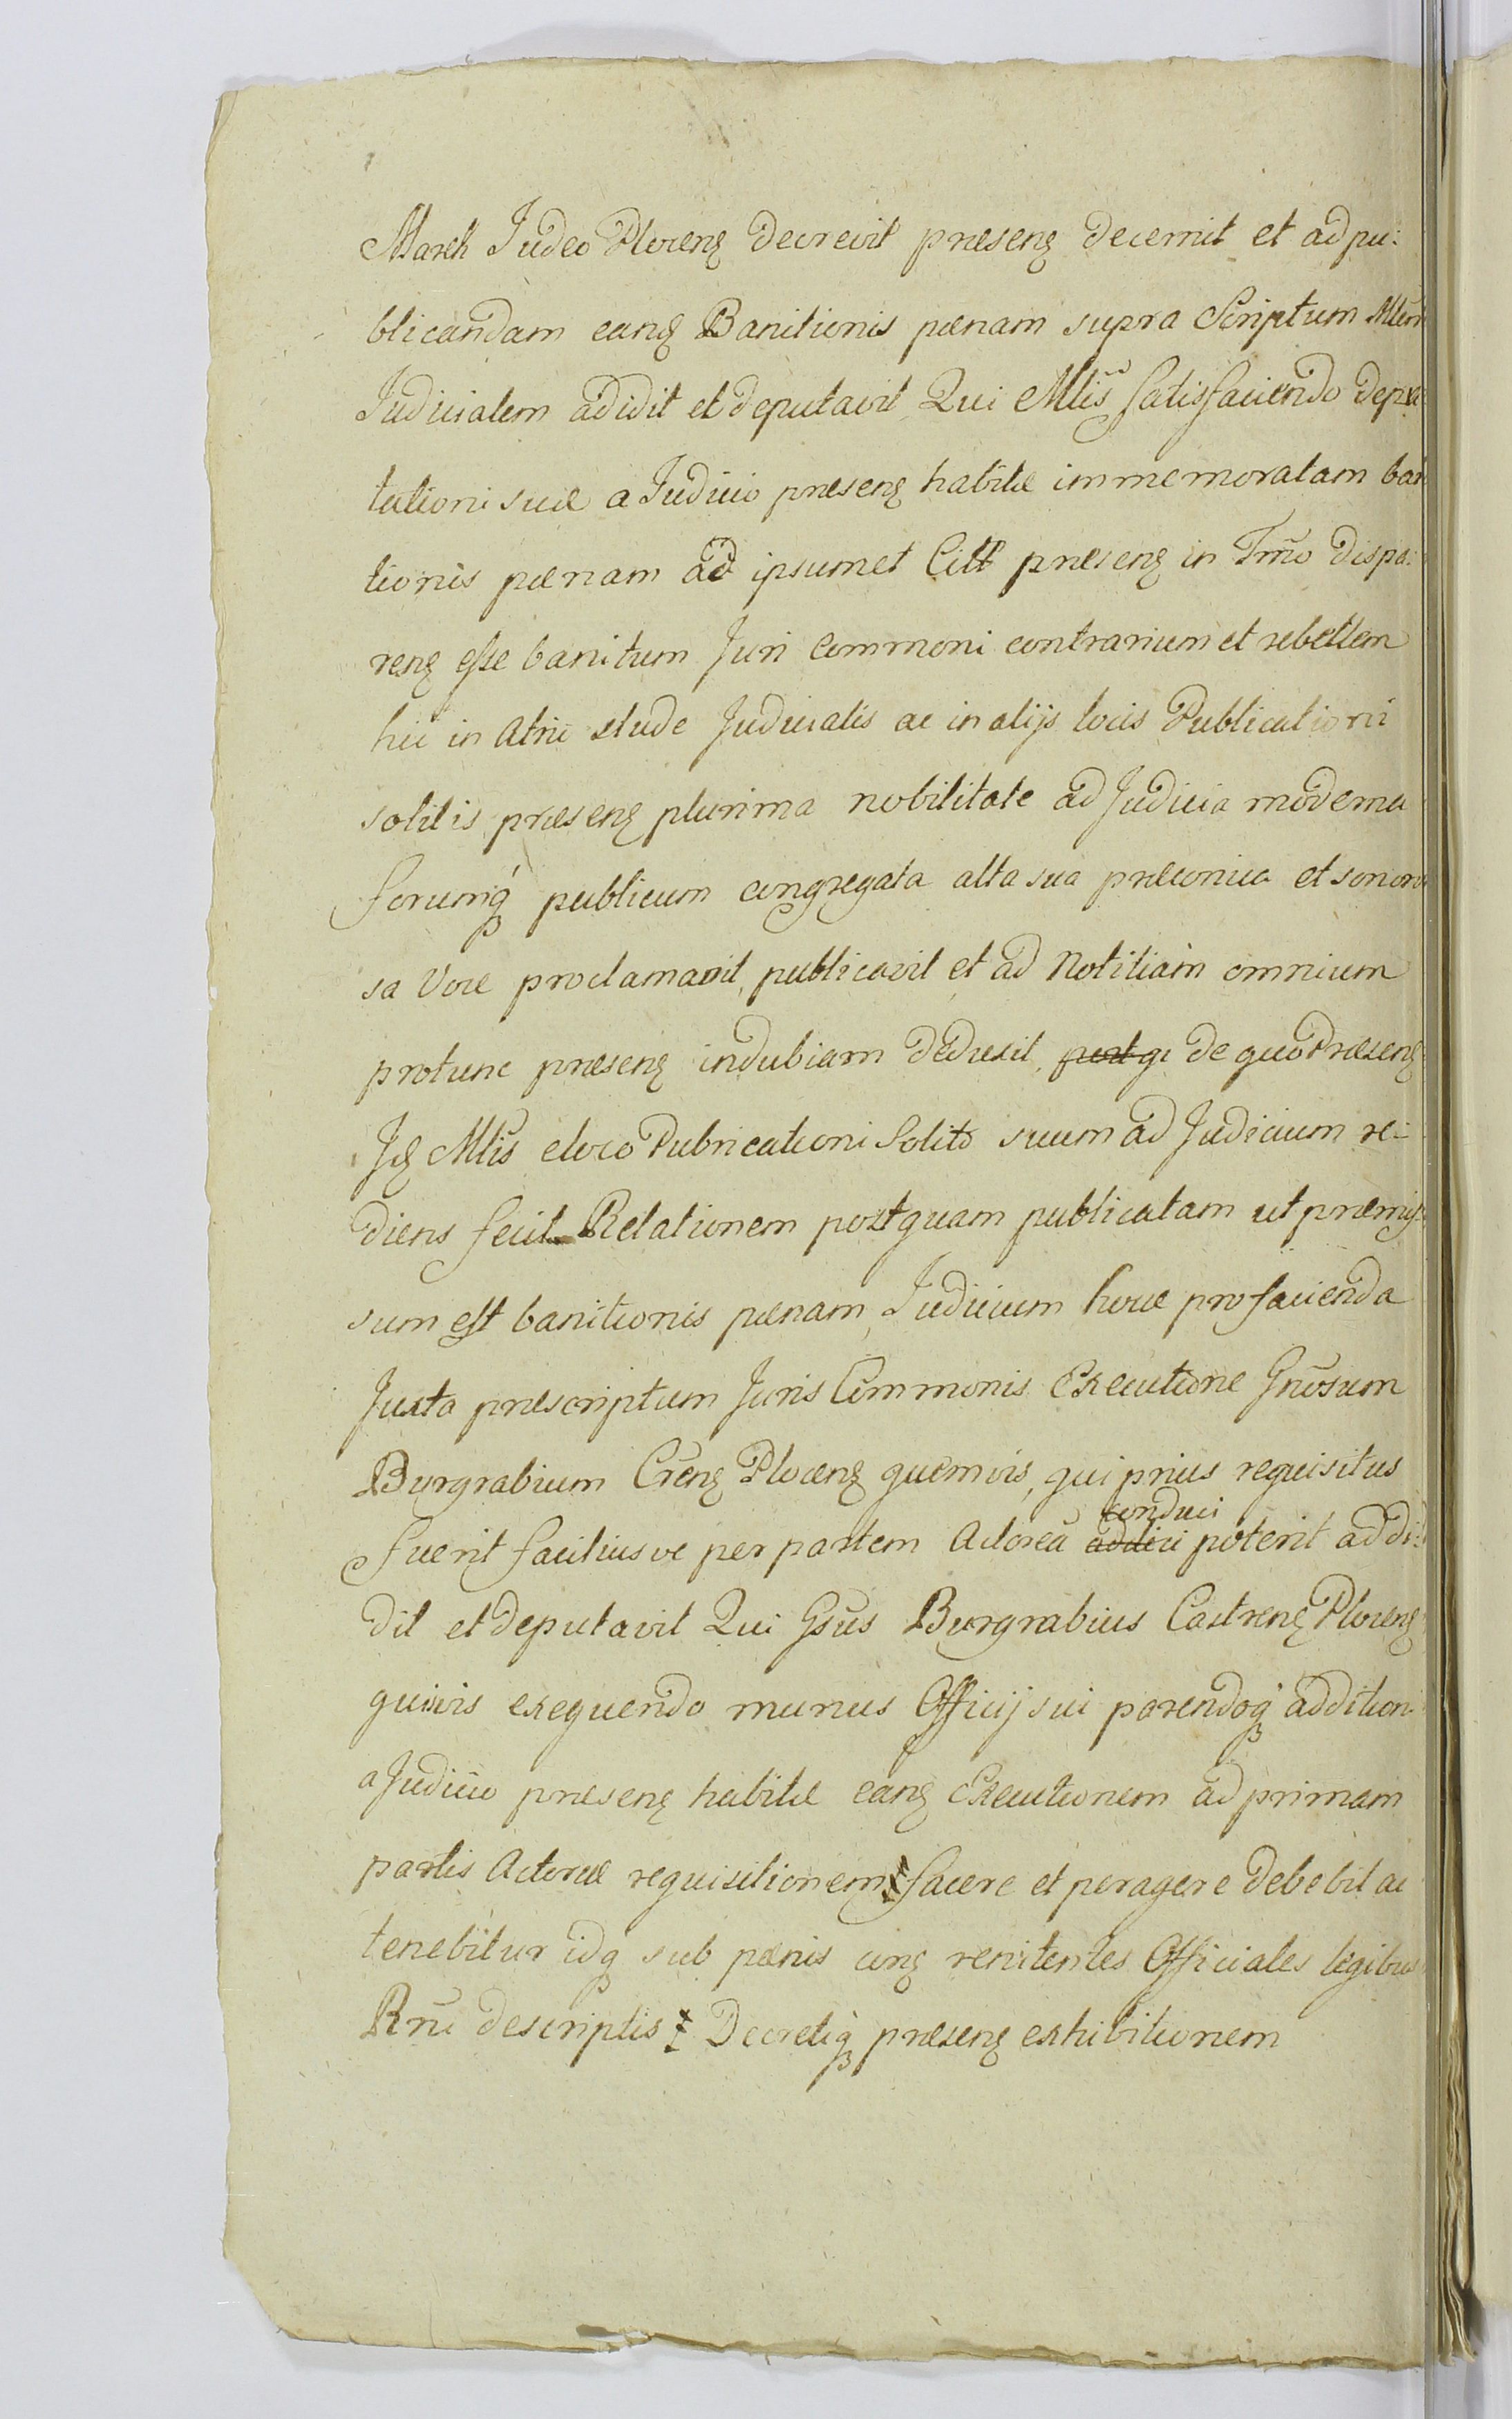 Marek Judeo Plocenȝ decrevit præsenȝ decernit et ad pu:
blicandam eanȝ Banitionis pænam supra Scriptum Mlem
Judicialem adidit et deputavit Qui Mlis satisfaciendo depu
tationi suæ a Judicio præsenȝ habitæ immemoratam bani
tionis pænam ad ipsumet Citt præsenȝ in Tmo dispa:
renȝ esse banitum Juri Commoni contrarium et rebellem
hic in Atrii stude Judicialis ac in alijs locis Publicationi
solitis præsenȝ plurima nobilitate ad Judicia moderna
forumq publicum congregata alta sua præconica et sonoro
sa Voce proclamavit, publicavit et ad Notitiam omnium
protunc præsenȝ indubiam deduxit, de quo Præsenȝ
Jȝ Mlis eloco Publicationi Solito suum ad Judicium re:
diens fecit Relationem postquam publicatam ut præmis
sum est banitionis pænam, Judicium hocce pro facienda
Juxta præscriptum Juris Commonis Executione Gnosum
Burgrabium Crenȝ Plocenȝ quemvis, qui prius requisitus
fuerit faciliusve per partem Actorea addici conduci poterit addi:
dit et deputavit Qui Gsus Burgrabius Castrenȝ Plocenȝ
quivis exequendo munus Officij sui parendoq addition
a Judicio præsenȝ habitæ eanȝ Executionem ad primam
partis Actoreæ requisitionem facere et peragere debebit ac
tenebitur idq sub pænis conȝ renitentes Officiales legibus
Rni descriptis Decretiq præsenȝ exhibitionem